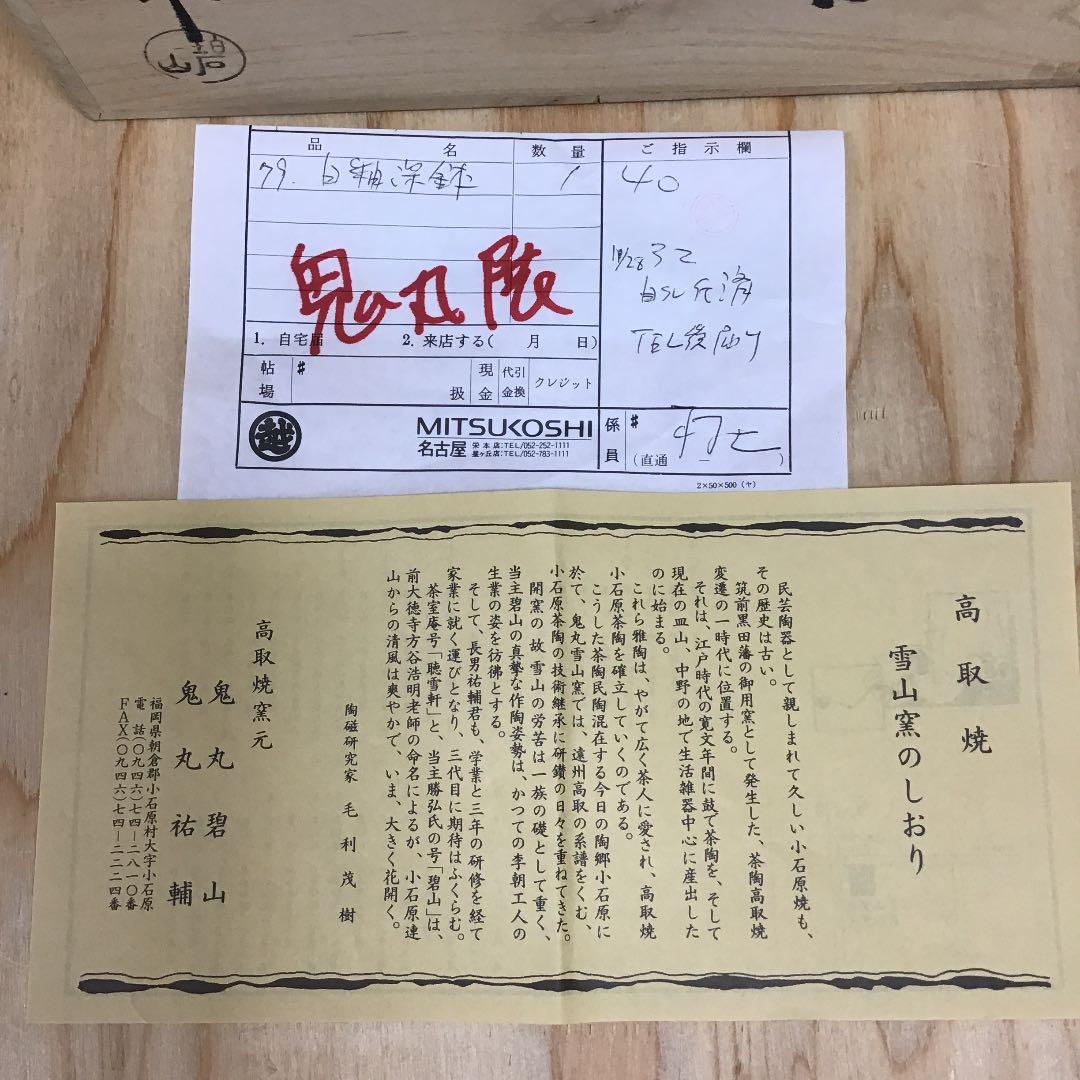 碧山
品名
数量
ご指示欄
79. 白釉深鉢
1
40
鬼の丸展
TEL後届け
1. 自宅届 2. 来店する( 月 日)
帖場 # 扱
現金
代引金換
クレジット
MITSUKOSHI
名古屋 栄本店:TEL/052-252-1111
星ヶ丘店:TEL/052-783-1111
係員 #
(直通 － )
2×50×500(ヤ)
高取焼
雪山窯のしおり
民芸陶器として親しまれて久しい小石原焼も、
その歴史は古い。
筑前黒田藩の御用窯として発生した、茶陶高取焼
変遷の一時代に位置する。
それは、江戸時代の寛文年間に鼓で茶陶を、そして
現在の皿山、中野の地で生活雑器中心に産出した
のに始まる。
これら雅陶は、やがて広く茶人に愛され、高取焼
小石原茶陶を確立していくのである。
こうした茶陶民陶混在する今日の陶郷小石原に
於て、鬼丸雪山窯では、遠州高取の系譜をくむ、
小石原茶陶の技術継承に研鑽の日々を重ねてきた。
開窯の故 雪山の労苦は一族の礎として重く、
当主碧山の真摯な作陶姿勢は、かつての李朝工人の
生業の姿を彷彿とする。
そして、長男祐輔君も、学業と三年の研修を経て
家業に就く運びとなり、三代目に期待はふくらむ。
茶室庵号「聴雪軒」と、当主勝弘氏の号「碧山」は、
前大徳寺方谷浩明老師の命名によるが、小石原連
山からの清風は爽やかで、いま、大きく花開く。
陶磁研究家 毛利茂樹
高取焼窯元
鬼丸碧山
鬼丸祐輔
福岡県朝倉郡小石原村大字小石原
電話(〇九四六)七四―二八一〇番
FAX(〇九四六)七四―二二二四番